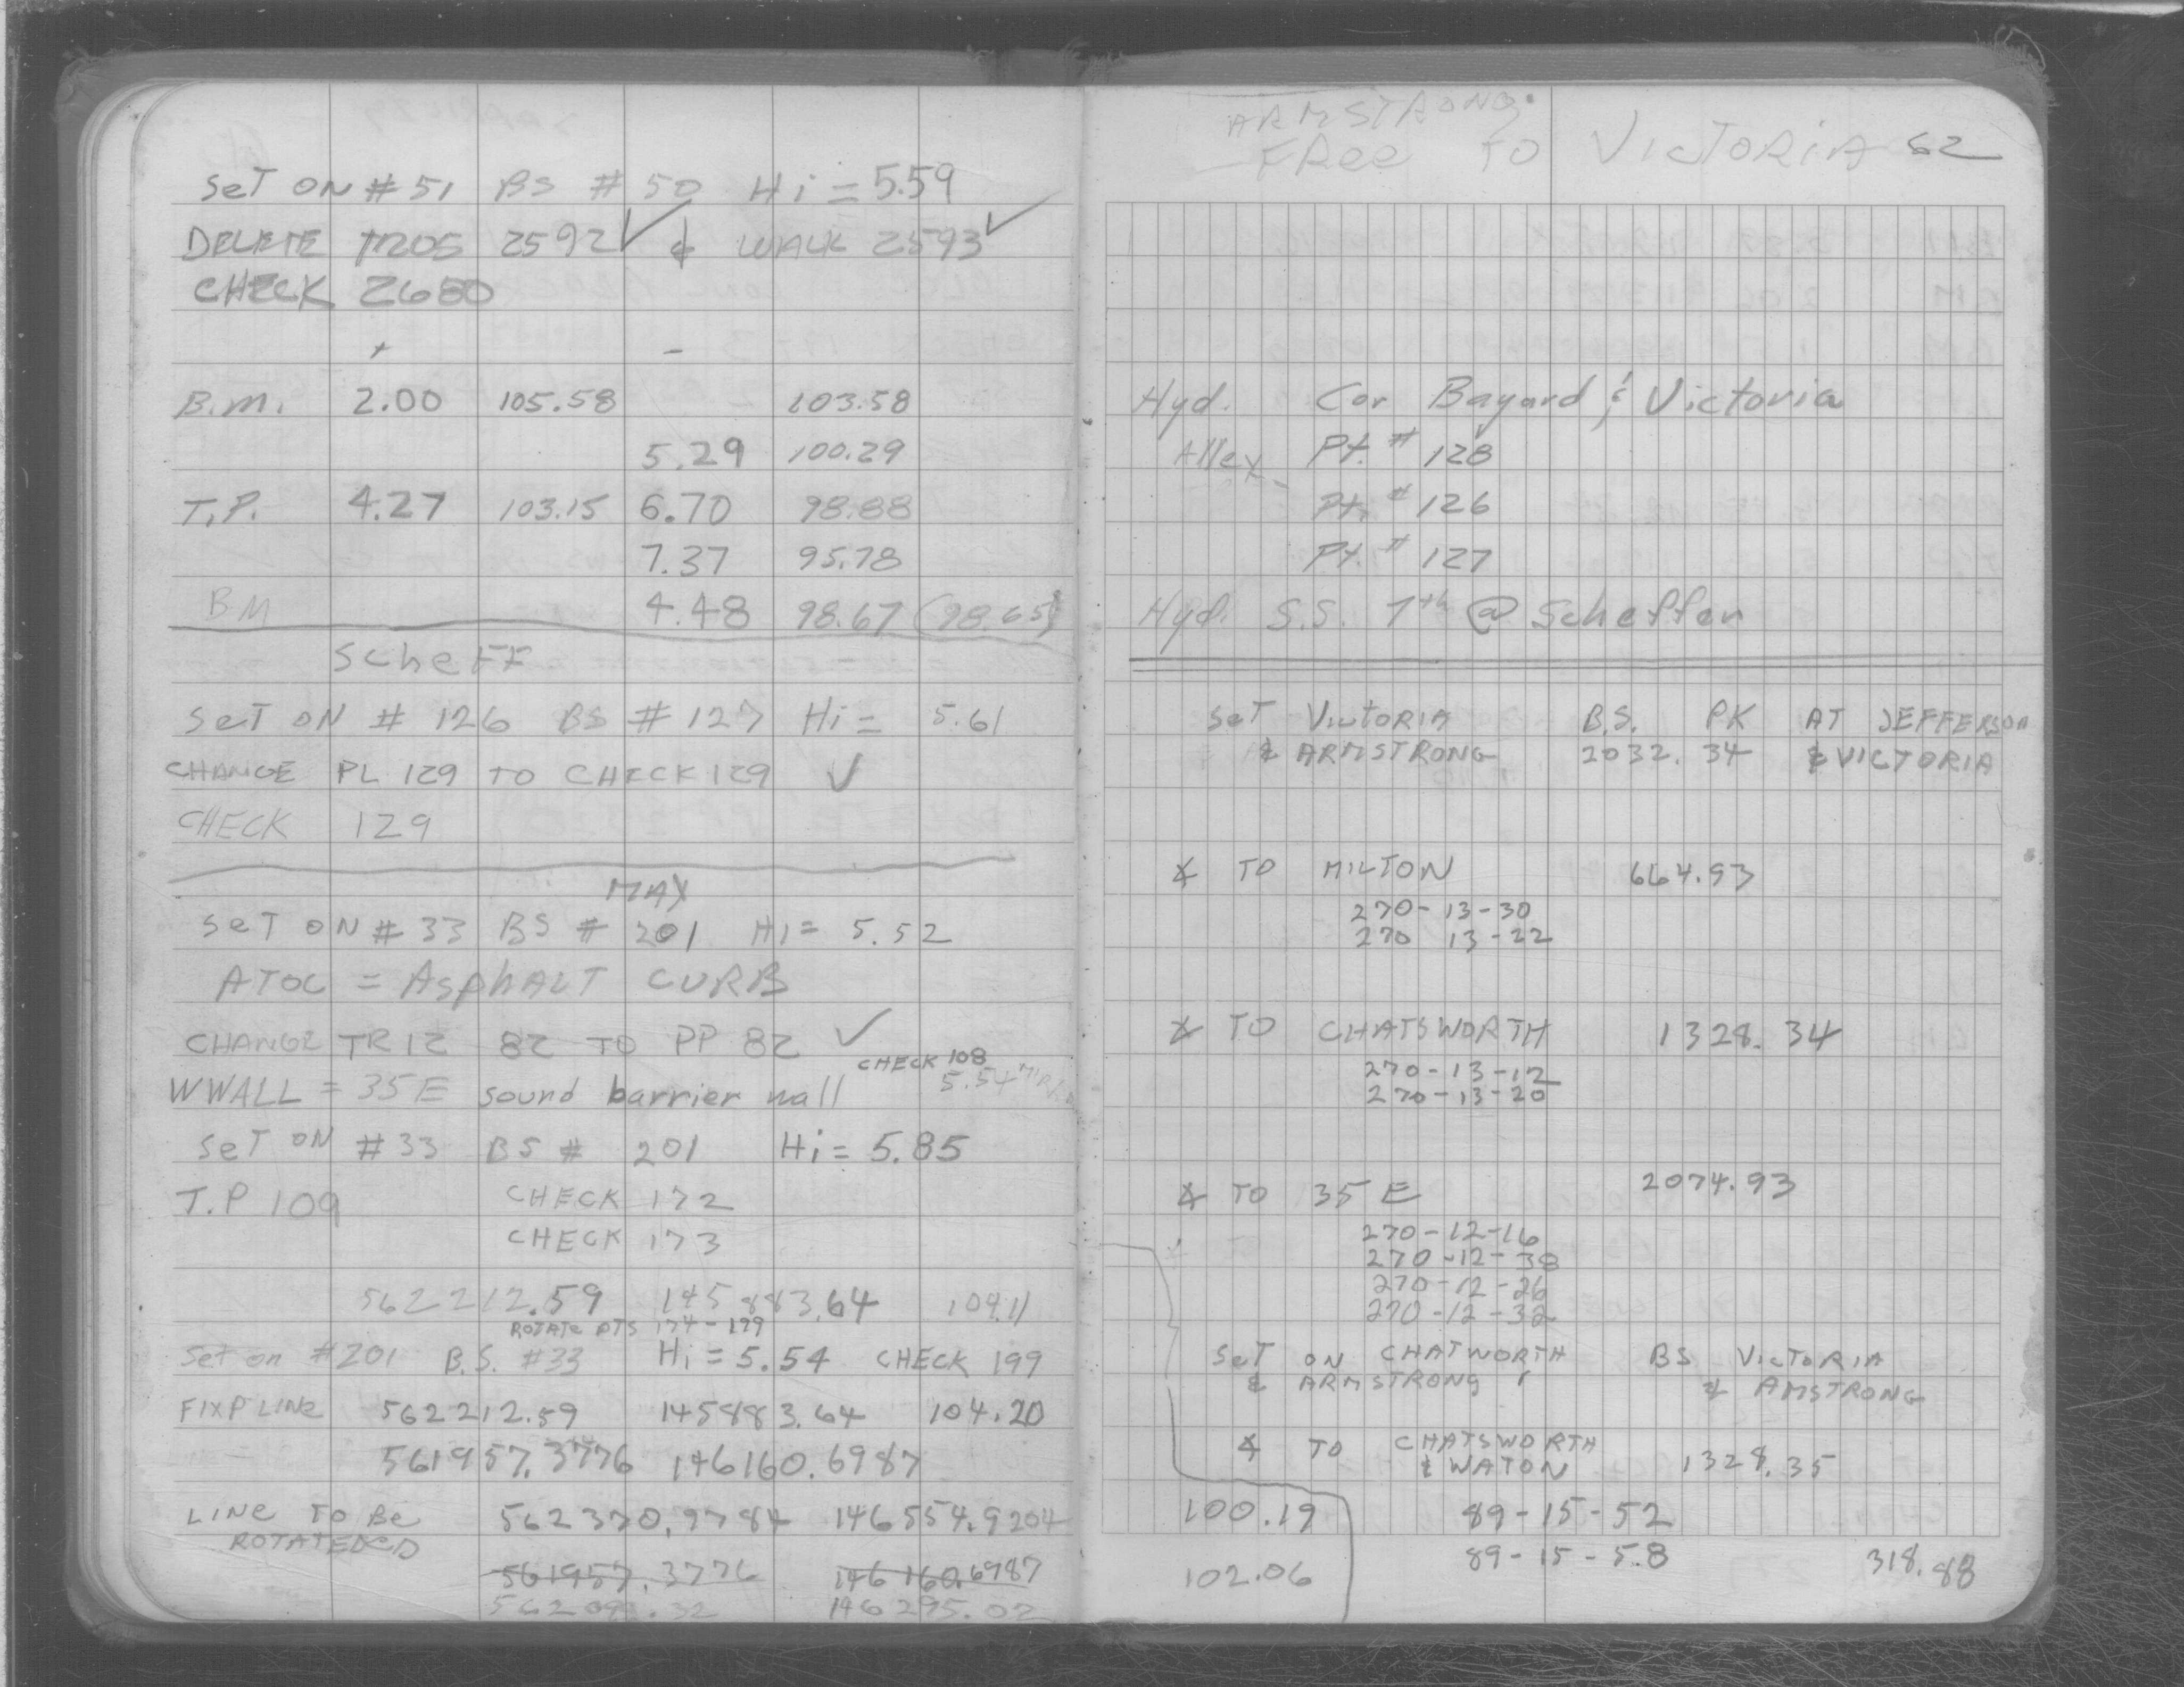 SeT ON # 51 BS # 50 Hi = 5.59
DELETE 2592 ✓ & WALK 2593 ✓
CHECK 2680
+ -
B.M. 2.00 105.58 103.58
5.29 100.29
T.P. 4.27 103.15 6.70 98.88
7.37 95.78
BM 4.48 98.67 (98.65)
ScheFF
SeT ON # 126 BS # 127 Hi = 5.61
CHANGE PL 129 TO CHECK 129 ✓
CHECK 129
MAX
SeT ON # 33 BS # 201 Hi = 5.52
ATOC = AsphALT CURB
CHANGE TR12 82 TO PP 82 ✓
CHECK 108
WWALL = 35E sound barrier wall 5.54
SeT ON # 33 BS # 201 Hi = 5.85
T.P 109 CHECK 172
CHECK 173
562212.59 145883.64 104.11
ROTATE PTS 174-179
Set on #201 B.S. #33 Hi = 5.54 CHECK 199
FIX P LINE 562212.59 145883.64 104.20
561957.3776 146160.6987
LINE TO Be 562370.9784 146554.9204
ROTATED
561957.3776 146160.6987
146295.02
ARMSTRONG
FRee TO VICTORIA 62
Hyd. Cor Bayard & Victoria
Alley Pt. # 128
Pt. # 126
Pt. # 127
Hyd. S.S. 7th @ Scheffer
SeT VICTORIA B.S. PK AT JEFFERSON
& ARMSTRONG 2032.34 & VICTORIA
∡ TO MILTON 664.93
270-13-30
270 13-22
∡ TO CHATSWORTH 1328.34
270-13-12
270-13-20
∡ TO 35 E 2074.93
270-12-16
270-12-38
270-12-26
270-12-32
SeT ON CHATWORTH BS VICTORIA
& ARMSTRONG & AMSTRONG
∡ TO CHATSWORTH
& WATON 1328.35
100.19 89-15-52
89-15-58 318.88
102.06